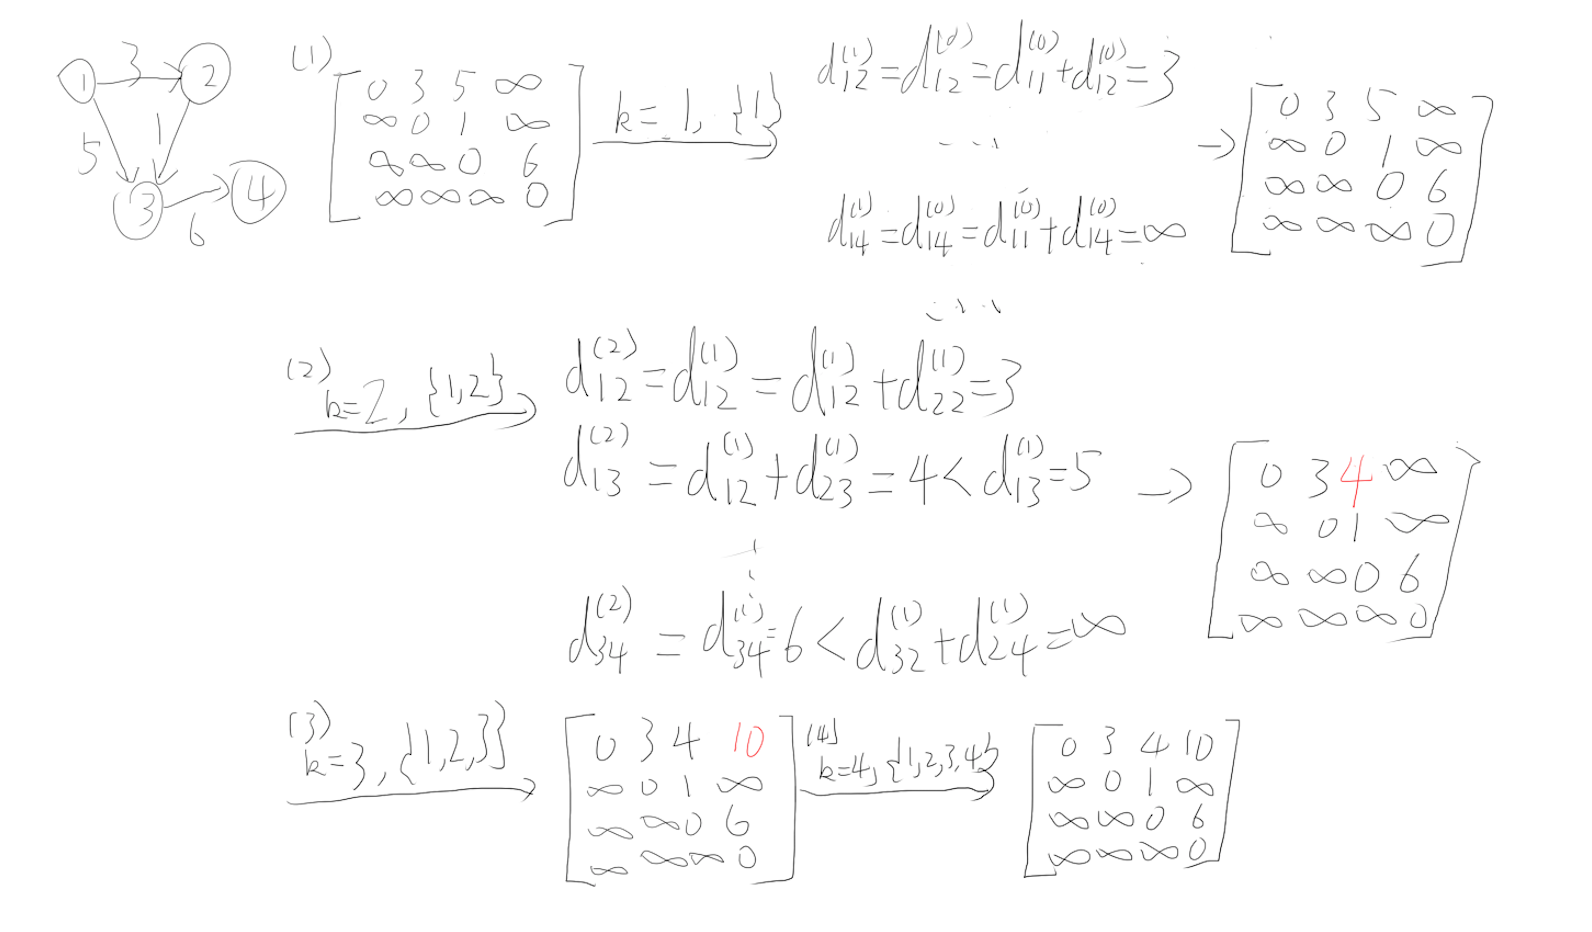 1 3 2
5 1
3 6 4
(1)
0 3 5 ∞
∞ 0 1 ∞
∞ ∞ 0 6
∞ ∞ ∞ 0
k=1, {1}
d₁₂⁽¹⁾=d₁₂⁽⁰⁾=d₁₁⁽⁰⁾+d₁₂⁽⁰⁾=3
...
d₁₄⁽¹⁾=d₁₄⁽⁰⁾=d₁₁⁽⁰⁾+d₁₄⁽⁰⁾=∞
...
→
0 3 5 ∞
∞ 0 1 ∞
∞ ∞ 0 6
∞ ∞ ∞ 0
(2)
k=2, {1,2}
d₁₂⁽²⁾=d₁₂⁽¹⁾=d₁₂⁽¹⁾+d₂₂⁽¹⁾=3
d₁₃⁽²⁾=d₁₂⁽¹⁾+d₂₃⁽¹⁾=4<d₁₃⁽¹⁾=5
d₃₄⁽²⁾=d₃₄⁽¹⁾=6<d₃₂⁽¹⁾+d₂₄⁽¹⁾=∞
→
0 3 4 ∞
∞ 0 1 ∞
∞ ∞ 0 6
∞ ∞ ∞ 0
(3)
k=3, {1,2,3}
0 3 4 10
∞ 0 1 ∞
∞ ∞ 0 6
∞ ∞ ∞ 0
(4)
k=4, {1,2,3,4}
0 3 4 10
∞ 0 1 ∞
∞ ∞ 0 6
∞ ∞ ∞ 0